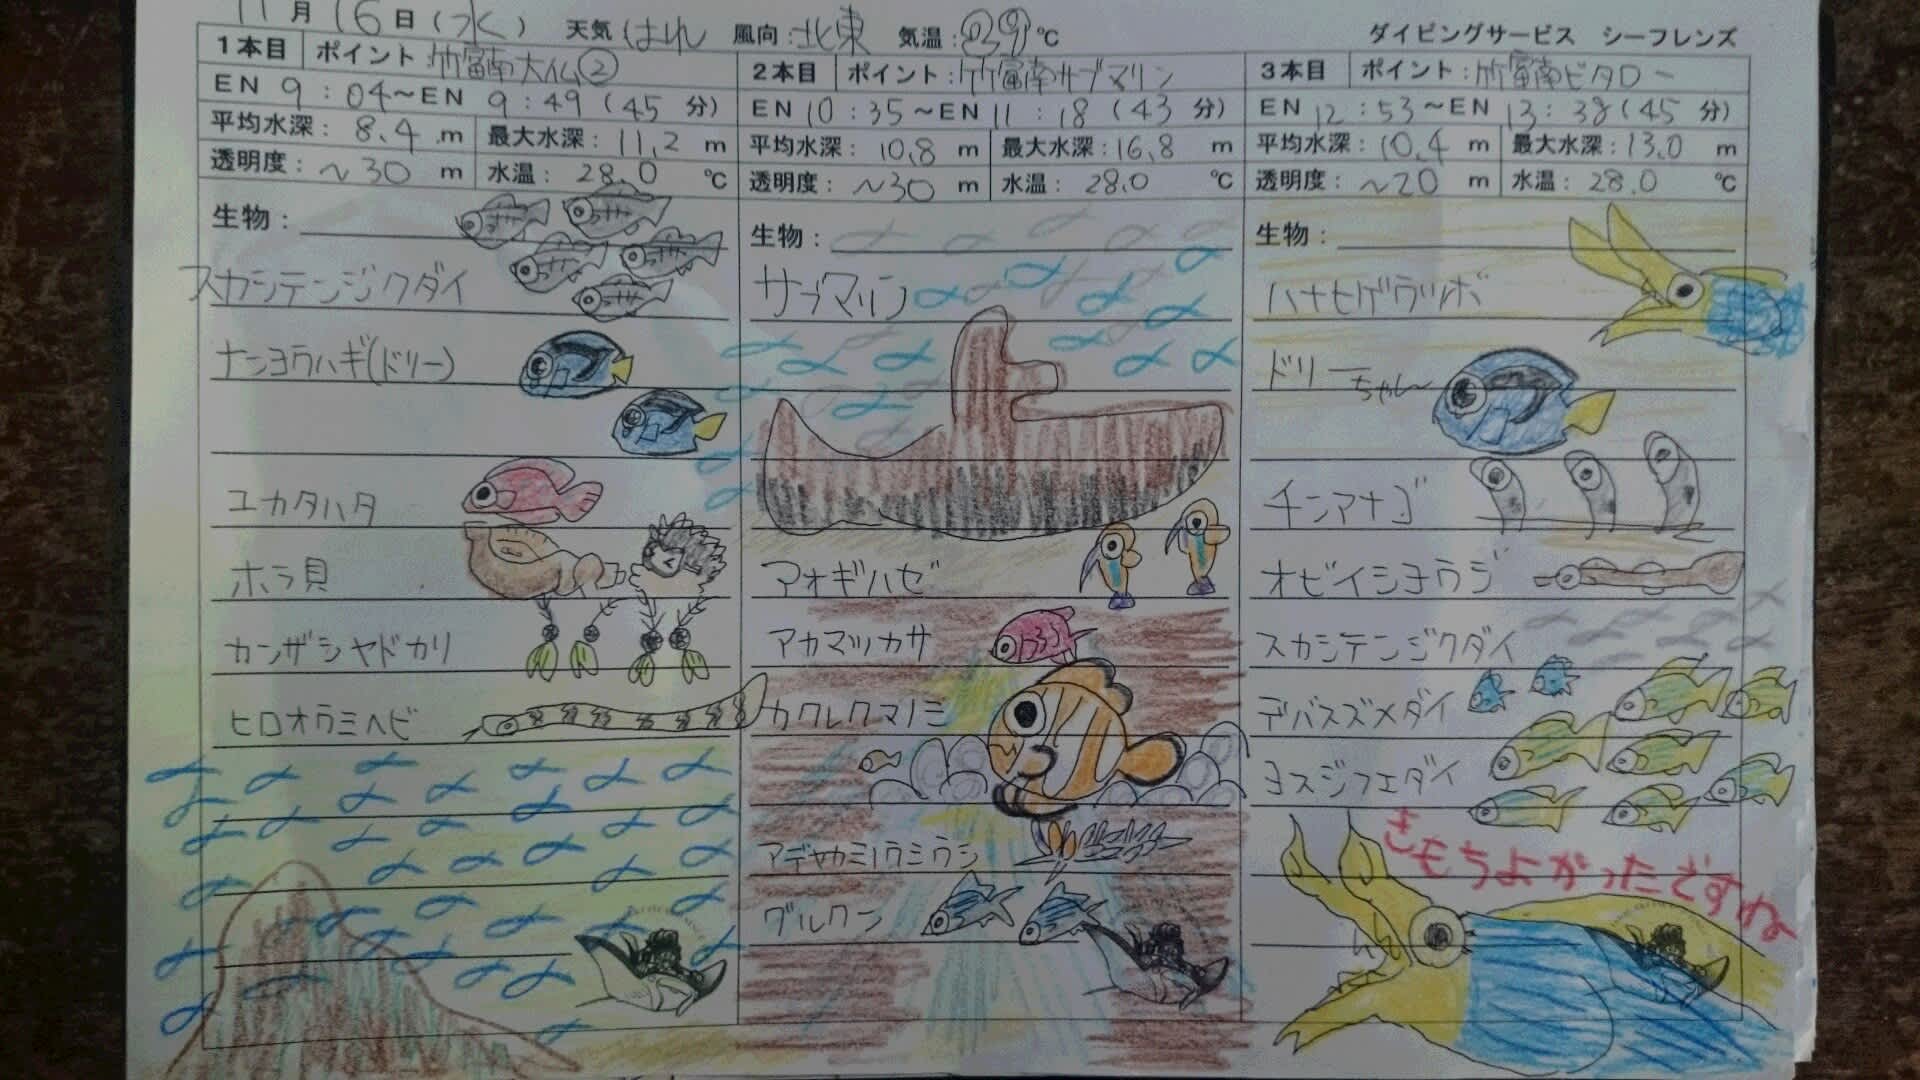 11月16日(水) 天気 はれ 風向:北東 気温:29℃ ダイビングサービス シーフレンズ
1本目 ポイント:竹富南大仏②
EN 9:04～EN 9:49(45分)
平均水深:8.4m 最大水深:11.2m
透明度:～30m 水温:28.0℃
生物:
スカシテンジクダイ
ナンヨウハギ(ドリー)
ユカタハタ
ホラ貝
カンザシヤドカリ
ヒロオウミヘビ
2本目 ポイント:竹富南サブマリン
EN 10:35～EN 11:18(43分)
平均水深:10.8m 最大水深:16.8m
透明度:～30m 水温:28.0℃
生物:
サブマリン
アオギハゼ
アカマツカサ
カクレクマノミ
アデヤカミノウミウシ
グルクン
3本目 ポイント:竹富南ビタロー
EN 12:53～EN 13:38(45分)
平均水深:10.4m 最大水深:13.0m
透明度:～20m 水温:28.0℃
生物:
ハナヒゲウツボ
ドリーちゃん～
チンアナゴ
オビイシヨウジ
スカシテンジクダイ
デバスズメダイ
ヨスジフエダイ
きもちよかったですね